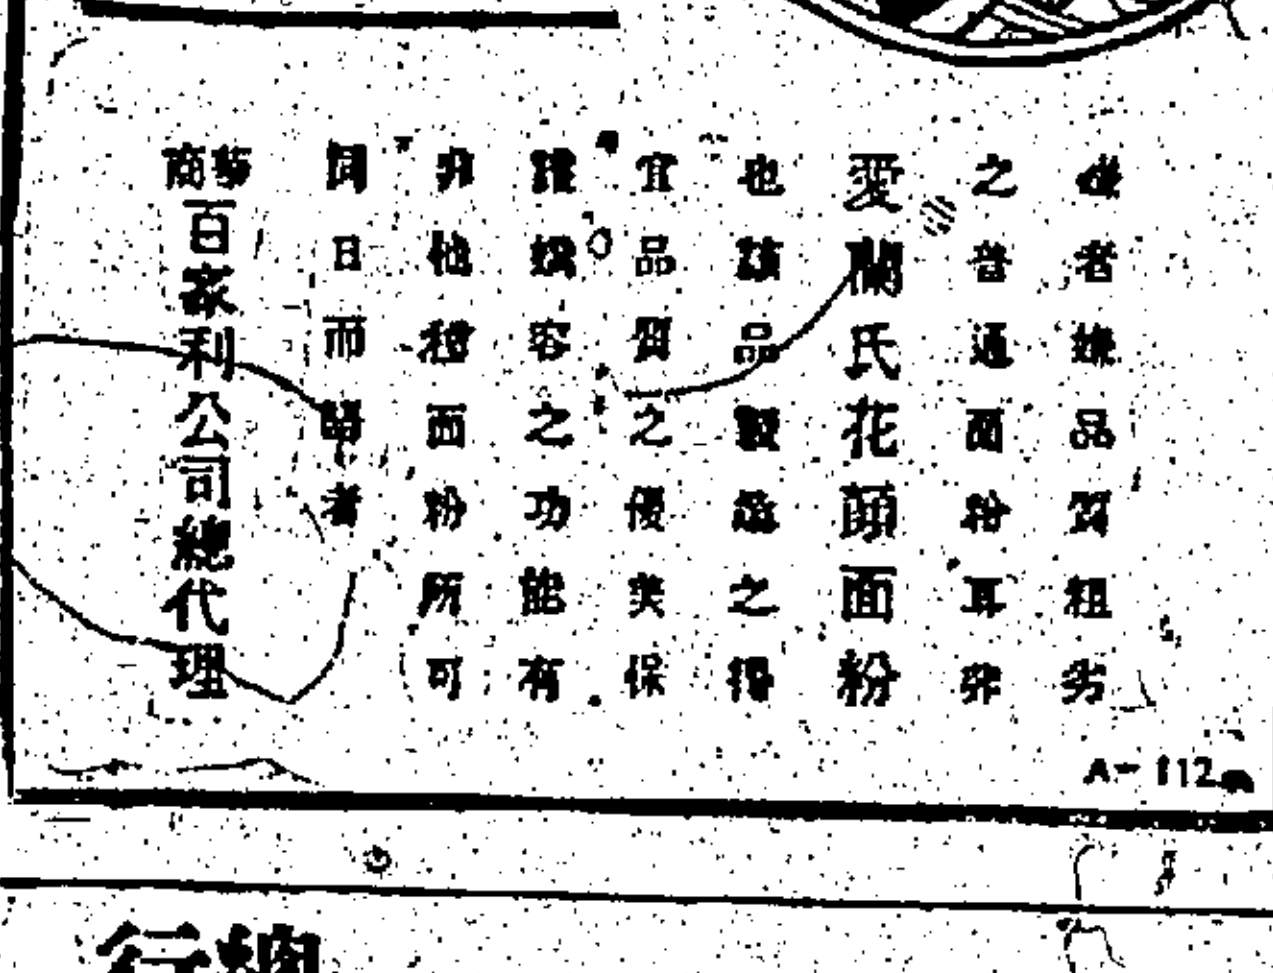 嫌者嫌品質粗劣
之普通面粉耳非
愛蘭氏花顏面粉
也該品製造之得
宜品質之優美保
護嬌容之功能有
非他種面粉所可
同日而語者
英商百家利公司總代理
A-112
行總